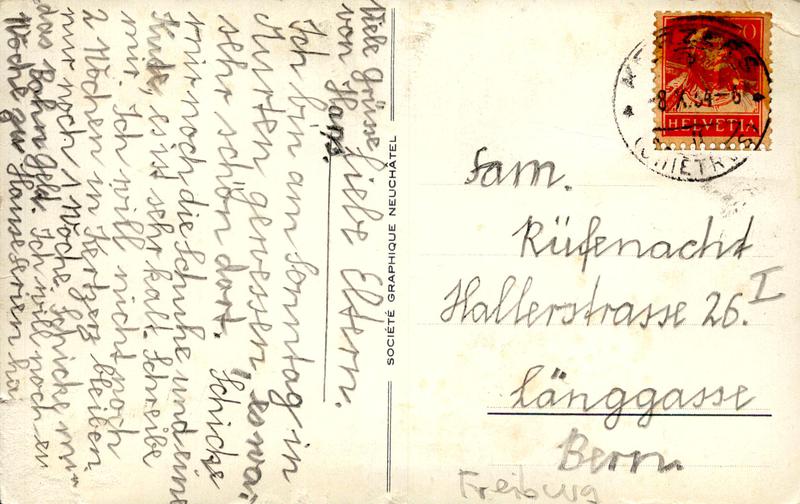 Viele Grüsse
von Hans.
Liebe Eltern.
Ich bin am Sonntag in
Murten gewessen, es war
sehr schön dort. Schicke
mir noch die Schuhe und eine
es ist sehr kalt. Schreibe
mir. Ich will nicht noch
2 Wochen in Kertzerz bleiben
nur noch 1 Woche. Schicke mir
das Bahngeld. Ich will noch ei
Woche zu Hause ferien ha
SOCIÉTÉ GRAPHIQUE NEUCHÂTEL
Fam.
Rüfenacht
Hallerstrasse 26. I
Länggasse
Bern.
Freiburg
HELVETIA